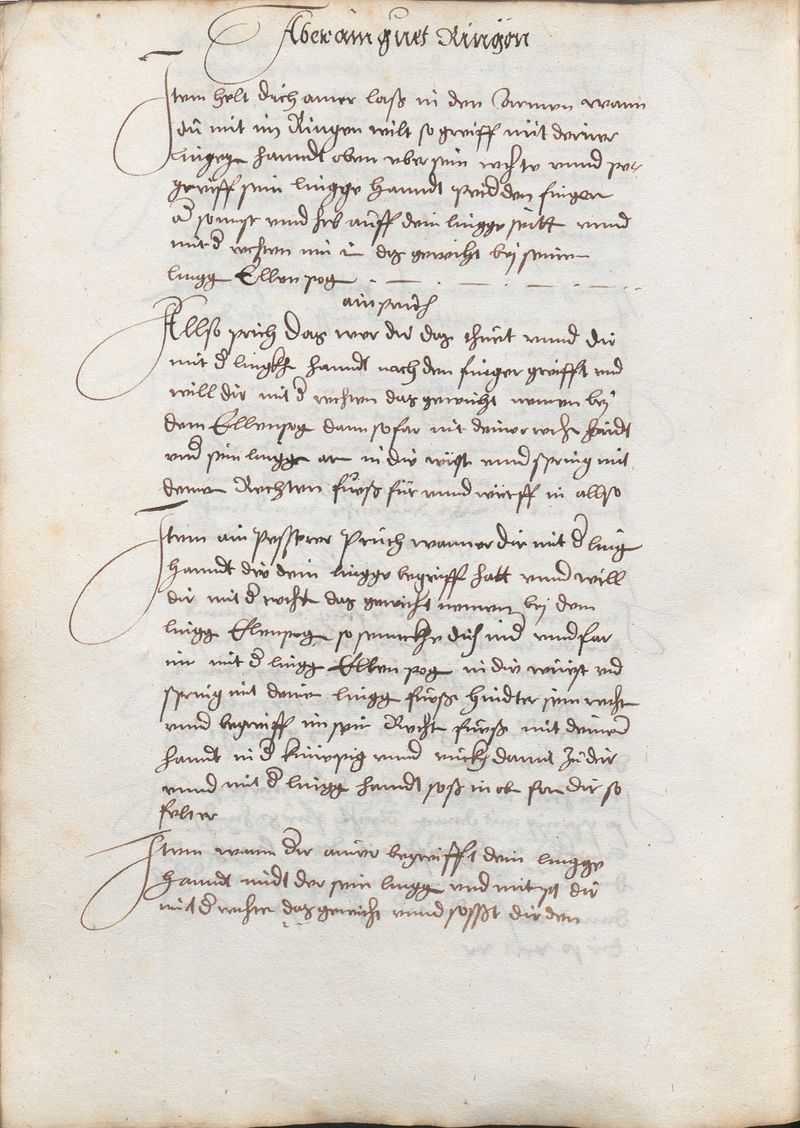 Aber ain guet Ringen
Item helt dich ainer laß in den Armen wann
du mit im Ringen wilt so greiff mit deiner
lingeg hanndt oben uber sein rechte unnd
greiff sein lingge hanndt pei den finger
sonnst unnd heb auff dein lingge seitt unnd
mit d rechten nim im das gewicht bej seinem
lingg Ellenpog
ain pruch
Allso prich das wer dir das thuet unnd dir
mit d lingkh hanndt nach den finger greifft und
will dir mit d rechten das gewicht nemen bej
dem Ellenpog dann so far mit deiner rechte handt
und sein lingge ar in die wüst unnd spring mit
deinem Rechten fueß für unnd würff in allso
Item ain pesserer pruch wann er dir mit d ling
hanndt die dein lingge begriff hatt unnd will
dir mit d recht das gewicht nemen bej dem
lingg Elenpog so senneckhe dich nid unnd far
im mit d lingg Ellenpog in die wüest und
spring mit deine lingg fueß hindter sein recht
unnd begreiff im sein Recht fueß mit deiner
handt in d kniepig unnd ruckh damit zu dir
unnd mit d lingg handt stoß in ob von dir so
felt er
Item wann dir ainer begreifft dein lingge
hanndt midt der sein lingg und nimpt dir
mit d rechte das gewicht unnd stosst dir den